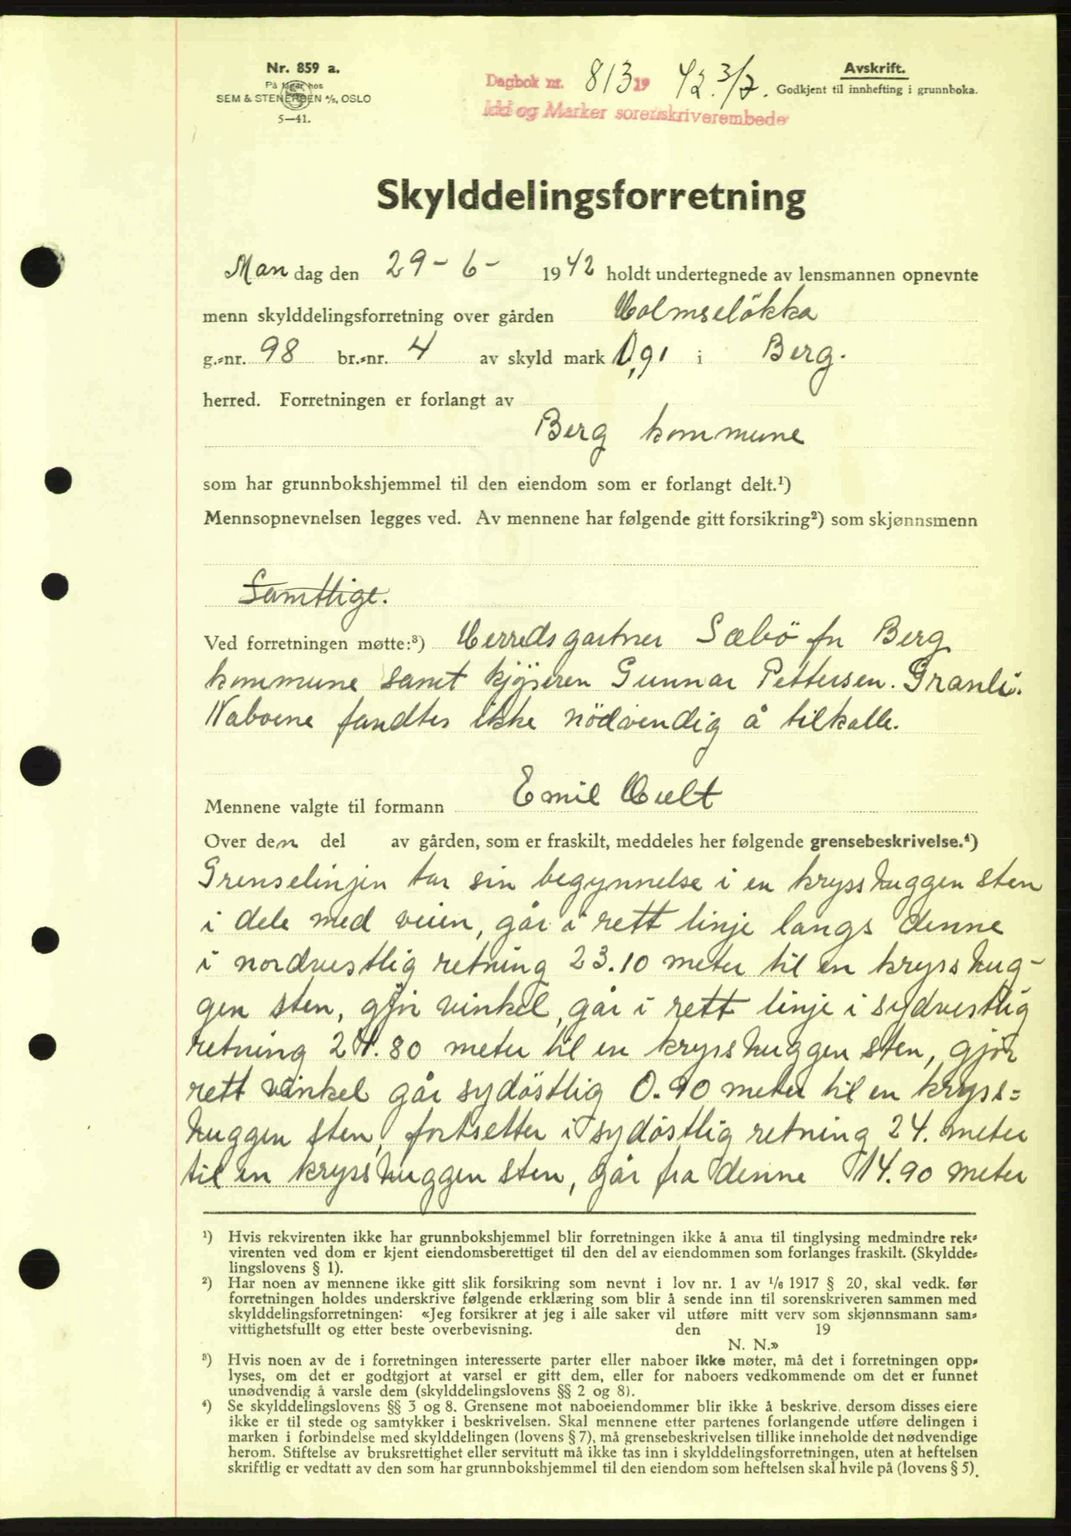 Nr. 859 a.
På lager hos
SEM & STENERSEN A/S, OSLO
5—41.
Dagbok nr. 813 19 42. 3/7.
Idd og Marker sorenskriverembede
Avskrift.
Godkjent til innhefting i grunnboka.
Skylddelingsforretning
Mandag den 29 - 6 - 1942 holdt undertegnede av lensmannen opnevnte
menn skylddelingsforretning over gården Holmseløkka
g.-nr. 98 br.-nr. 4 av skyld mark 0,91 i Berg.
herred. Forretningen er forlangt av
Berg kommune
som har grunnbokshjemmel til den eiendom som er forlangt delt.¹)
Mennsopnevnelsen legges ved. Av mennene har følgende gitt forsikring²) som skjønnsmenn
Samtlige.
Ved forretningen møtte:³) Herredsgartner Sæbö fr Berg
kommune samt kjøperen Gunnar Pettersen. Granli.
Naboene fandtes ikke nödvendig å tilkalle.
Mennene valgte til formann Emil Hult
Over den del av gården, som er fraskilt, meddeles her følgende grensebeskrivelse.⁴)
Grenselinjen tar sin begynnelse i en krysshuggen sten
i dele med veien, går i rett linje langs denne
i nordvestlig retning 23.10 meter til en krysshug-
gen sten, gjör vinkel, går i rett linje i sydvestlig
retning 21.80 meter til en krysshuggen sten, gjör
rett vinkel går sydöstlig 0.90 meter til en kryss=
huggen sten, fortsetter i sydöstlig retning 24. meter
til en krysshuggen sten, går fra denne 14.90 meter
¹) Hvis rekvirenten ikke har grunnbokshjemmel blir forretningen ikke å anta til tinglysing medmindre rek-
virenten ved dom er kjent eiendomsberettiget til den del av eiendommen som forlanges fraskilt. (Skyldde-
lingslovens § 1).
²) Har noen av mennene ikke gitt slik forsikring som nevnt i lov nr. 1 av 1/6 1917 § 20, skal vedk. før
forretningen holdes underskrive følgende erklæring som blir å sende inn til sorenskriveren sammen med
skylddelingsforretningen: «Jeg forsikrer at jeg i alle saker vil utføre mitt verv som skjønnsmann sam-
vittighetsfullt og etter beste overbevisning. den 19
N. N.»
³) Hvis noen av de i forretningen interesserte parter eller naboer ikke møter, må det i forretningen opp-
lyses, om det er godtgjort at varsel er gitt dem, eller for naboers vedkommende om det er funnet
unødvendig å varsle dem (skylddelingslovens §§ 2 og 8).
⁴) Se skylddelingslovens §§ 3 og 8. Grensene mot naboeiendommer blir ikke å beskrive, dersom disses eiere
ikke er til stede og samtykker i beskrivelsen. Skal mennene etter partenes forlangende utføre delingen i
marken i forbindelse med skylddelingen (lovens § 7), må grensebeskrivelsen tillike inneholde det nødvendige
herom. Stiftelse av bruksrettighet eller servitutt må ikke tas inn i skylddelingsforretningen, uten at heftelsen
skriftlig er vedtatt av den som har grunnbokshjemmel til den eiendom som heftelsen skal hvile på (lovens § 5).